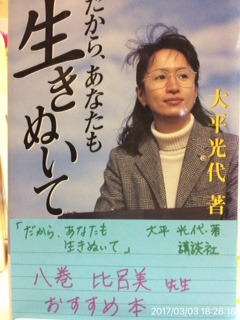 だから、あなたも
生きぬいて
大平光代 著
「だから、あなたも
生きぬいて」
大平 光代・著
講談社
八巻 比呂美 先生
おすすめ本
2017/03/03 18:28:18